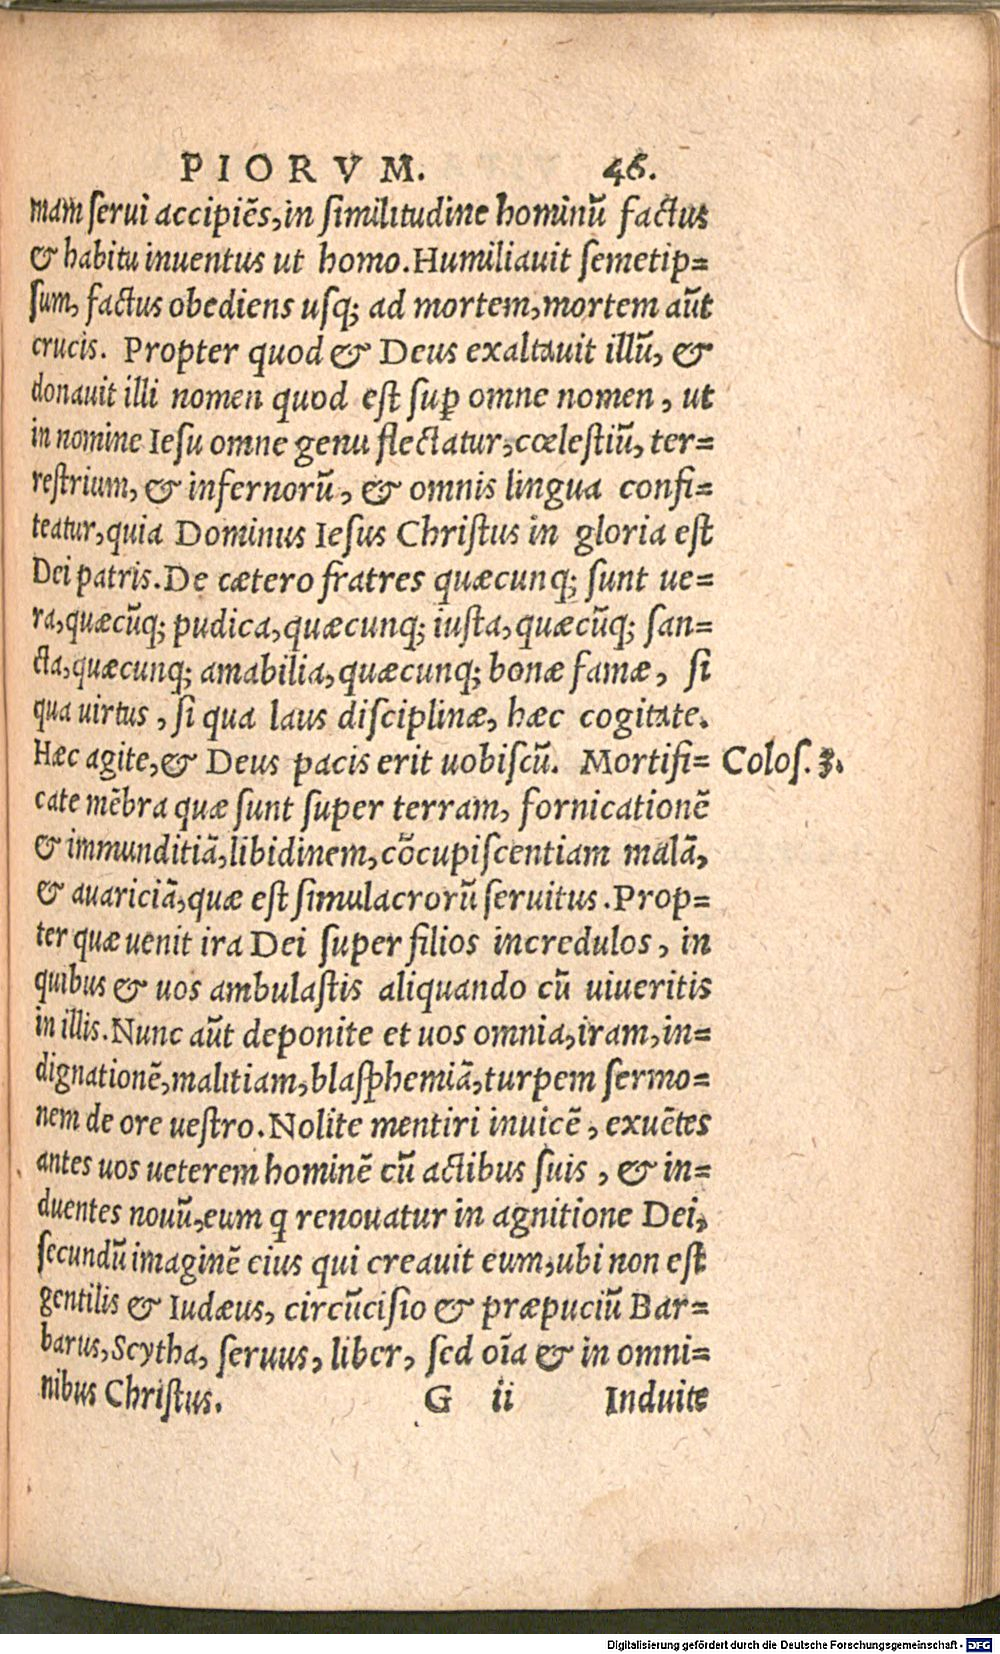 PIORVM. 46.
mam serui accipiẽs, in similitudine hominũ factus
& habitu inuentus ut homo. Humiliauit semetip=
sum, factus obediens usq; ad mortem, mortem aũt
crucis. Propter quod & Deus exaltauit illũ, &
donauit illi nomen quod est suꝑ omne nomen, ut
in nomine Iesu omne genu flectatur, cœlestiũ, ter=
restrium, & infernorũ, & omnis lingua confi=
teatur, quia Dominus Iesus Christus in gloria est
Dei patris. De cætero fratres quæcunq; sunt ue=
ra, quæcũq; pudica, quæcunq; iusta, quæcũq; san=
cta, quæcunq; amabilia, quæcunq; bonæ famæ, si
qua uirtus, si qua laus disciplinæ, hæc cogitate.
Hæc agite, & Deus pacis erit uobiscũ. Mortifi= Colos. 3.
cate mẽbra quæ sunt super terram, fornicationẽ
& immunditiã, libidinem, cõcupiscentiam malã,
& auariciã, quæ est simulacrorũ seruitus. Prop=
ter quæ uenit ira Dei super filios incredulos, in
quibus & uos ambulastis aliquando cũ uiueritis
in illis. Nunc aũt deponite et uos omnia, iram, in=
dignationẽ, malitiam, blasphemiã, turpem sermo=
nem de ore uestro. Nolite mentiri inuicẽ, exuẽtes
antes uos ueterem hominẽ cũ actibus suis, & in=
duentes nouũ, eum q renouatur in agnitione Dei,
secundũ imaginẽ eius qui creauit eum, ubi non est
gentilis & Iudæus, circũcisio & præpuciũ Bar=
barus, Scytha, seruus, liber, sed oĩa & in omni=
nibus Christus. G ii Induite
Digitalisierung gefördert durch die Deutsche Forschungsgemeinschaft - DFG